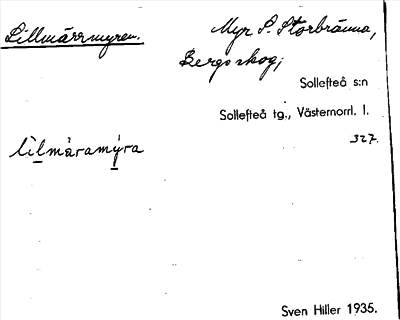 Lillmärrmyren.
Myr S. Storbränna,
Bergs skog;
Sollefteå s:n
Sollefteå tg., Västernorrl. l.
327.
lìlmàramýra
Sven Hiller 1935.